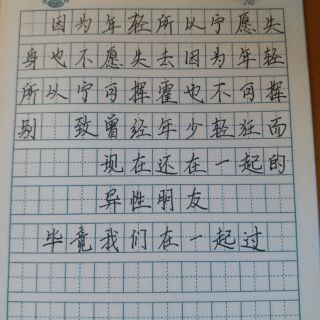 因为年轻所以宁愿失
身也不愿失去因为年轻
所以宁可挥霍也不可挥
别 致曾经年少轻狂而
现在还在一起的
异性朋友
毕竟我们在一起过